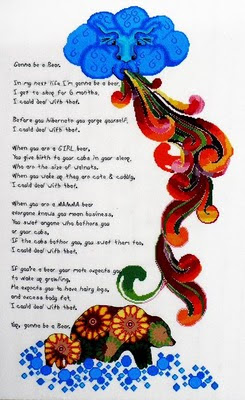 Gonna be a Bear.
In my next life I'm gonna be a bear,
I get to sleep for 6 months,
I could deal with that.
Before you hibernate you gorge yourself,
I could deal with that.
When you are a GIRL bear,
You give birth to your cubs in your sleep,
Who are the size of walnuts,
When you wake up they are cute & cuddly,
I could deal with that.
When you are a MAMA bear
everyone knows you mean business,
You swat anyone who bothers you
or your cubs,
If the cubs bother you, you swat them too,
I could deal with that.
If you're a bear your mate expects you
to wake up growling,
He expects you to have hairy legs,
and excess body fat.
I could deal with that.
Yep, gonna be a Bear.